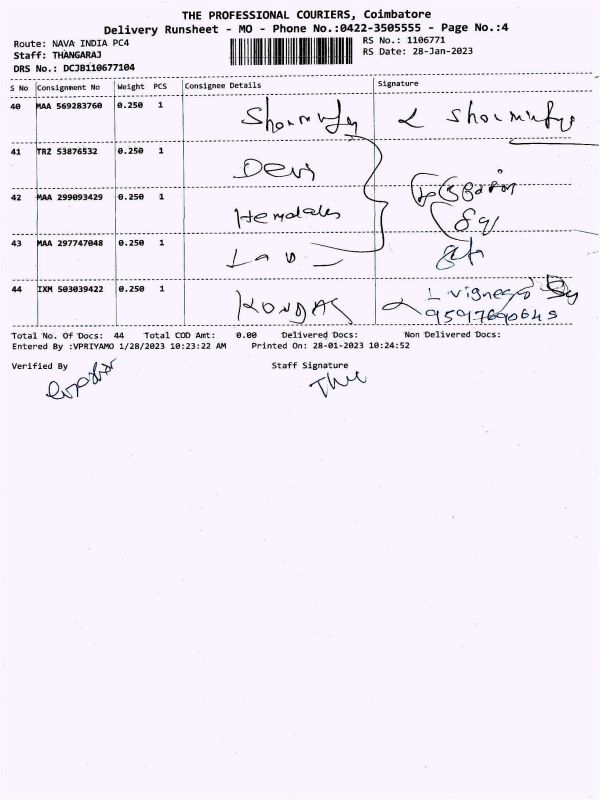 THE PROFESSIONAL COURIERS, Coimbatore
Delivery Runsheet - MO - Phone No.:0422-3505555 - Page No.:4
Route: NAVA INDIA PC4
RS No.: 1106771
Staff: THANGARAJ
RS Date: 28-Jan-2023
DRS No.: DCJB110677104
S No Consignment No Weight PCS Consignee Details Signature
40 MAA 569283760 0.250 1
41 TRZ 53876532 0.250 1 Devi
42 MAA 299093429 0.250 1
43 MAA 297747048 0.250 1
44 IXM 503039422 0.250 1
Total No. Of Docs: 44 Total COD Amt: 0.00 Delivered Docs: Non Delivered Docs:
Entered By :VPRIYAMO 1/28/2023 10:23:22 AM Printed On: 28-01-2023 10:24:52
Verified By Staff Signature